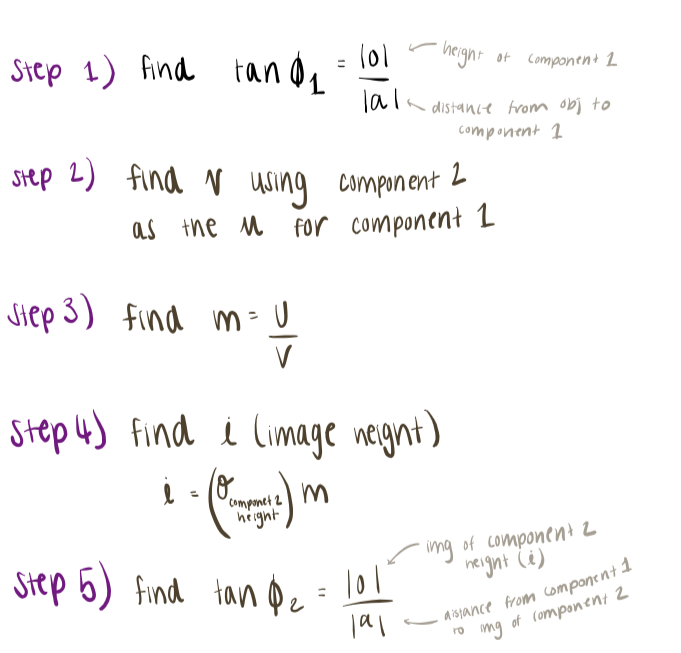 Step 1) find tan ϕ₁ = |o| / |a|
height of component 1
distance from obj to
component 1
Step 2) find v using component 2
as the u for component 1
Step 3) find m = U / V
Step 4) find i (image height)
i = (O component 2 height) m
img of component 2
height (i)
Step 5) find tan ϕ₂ = |o| / |a|
distance from component 1
to img of component 2